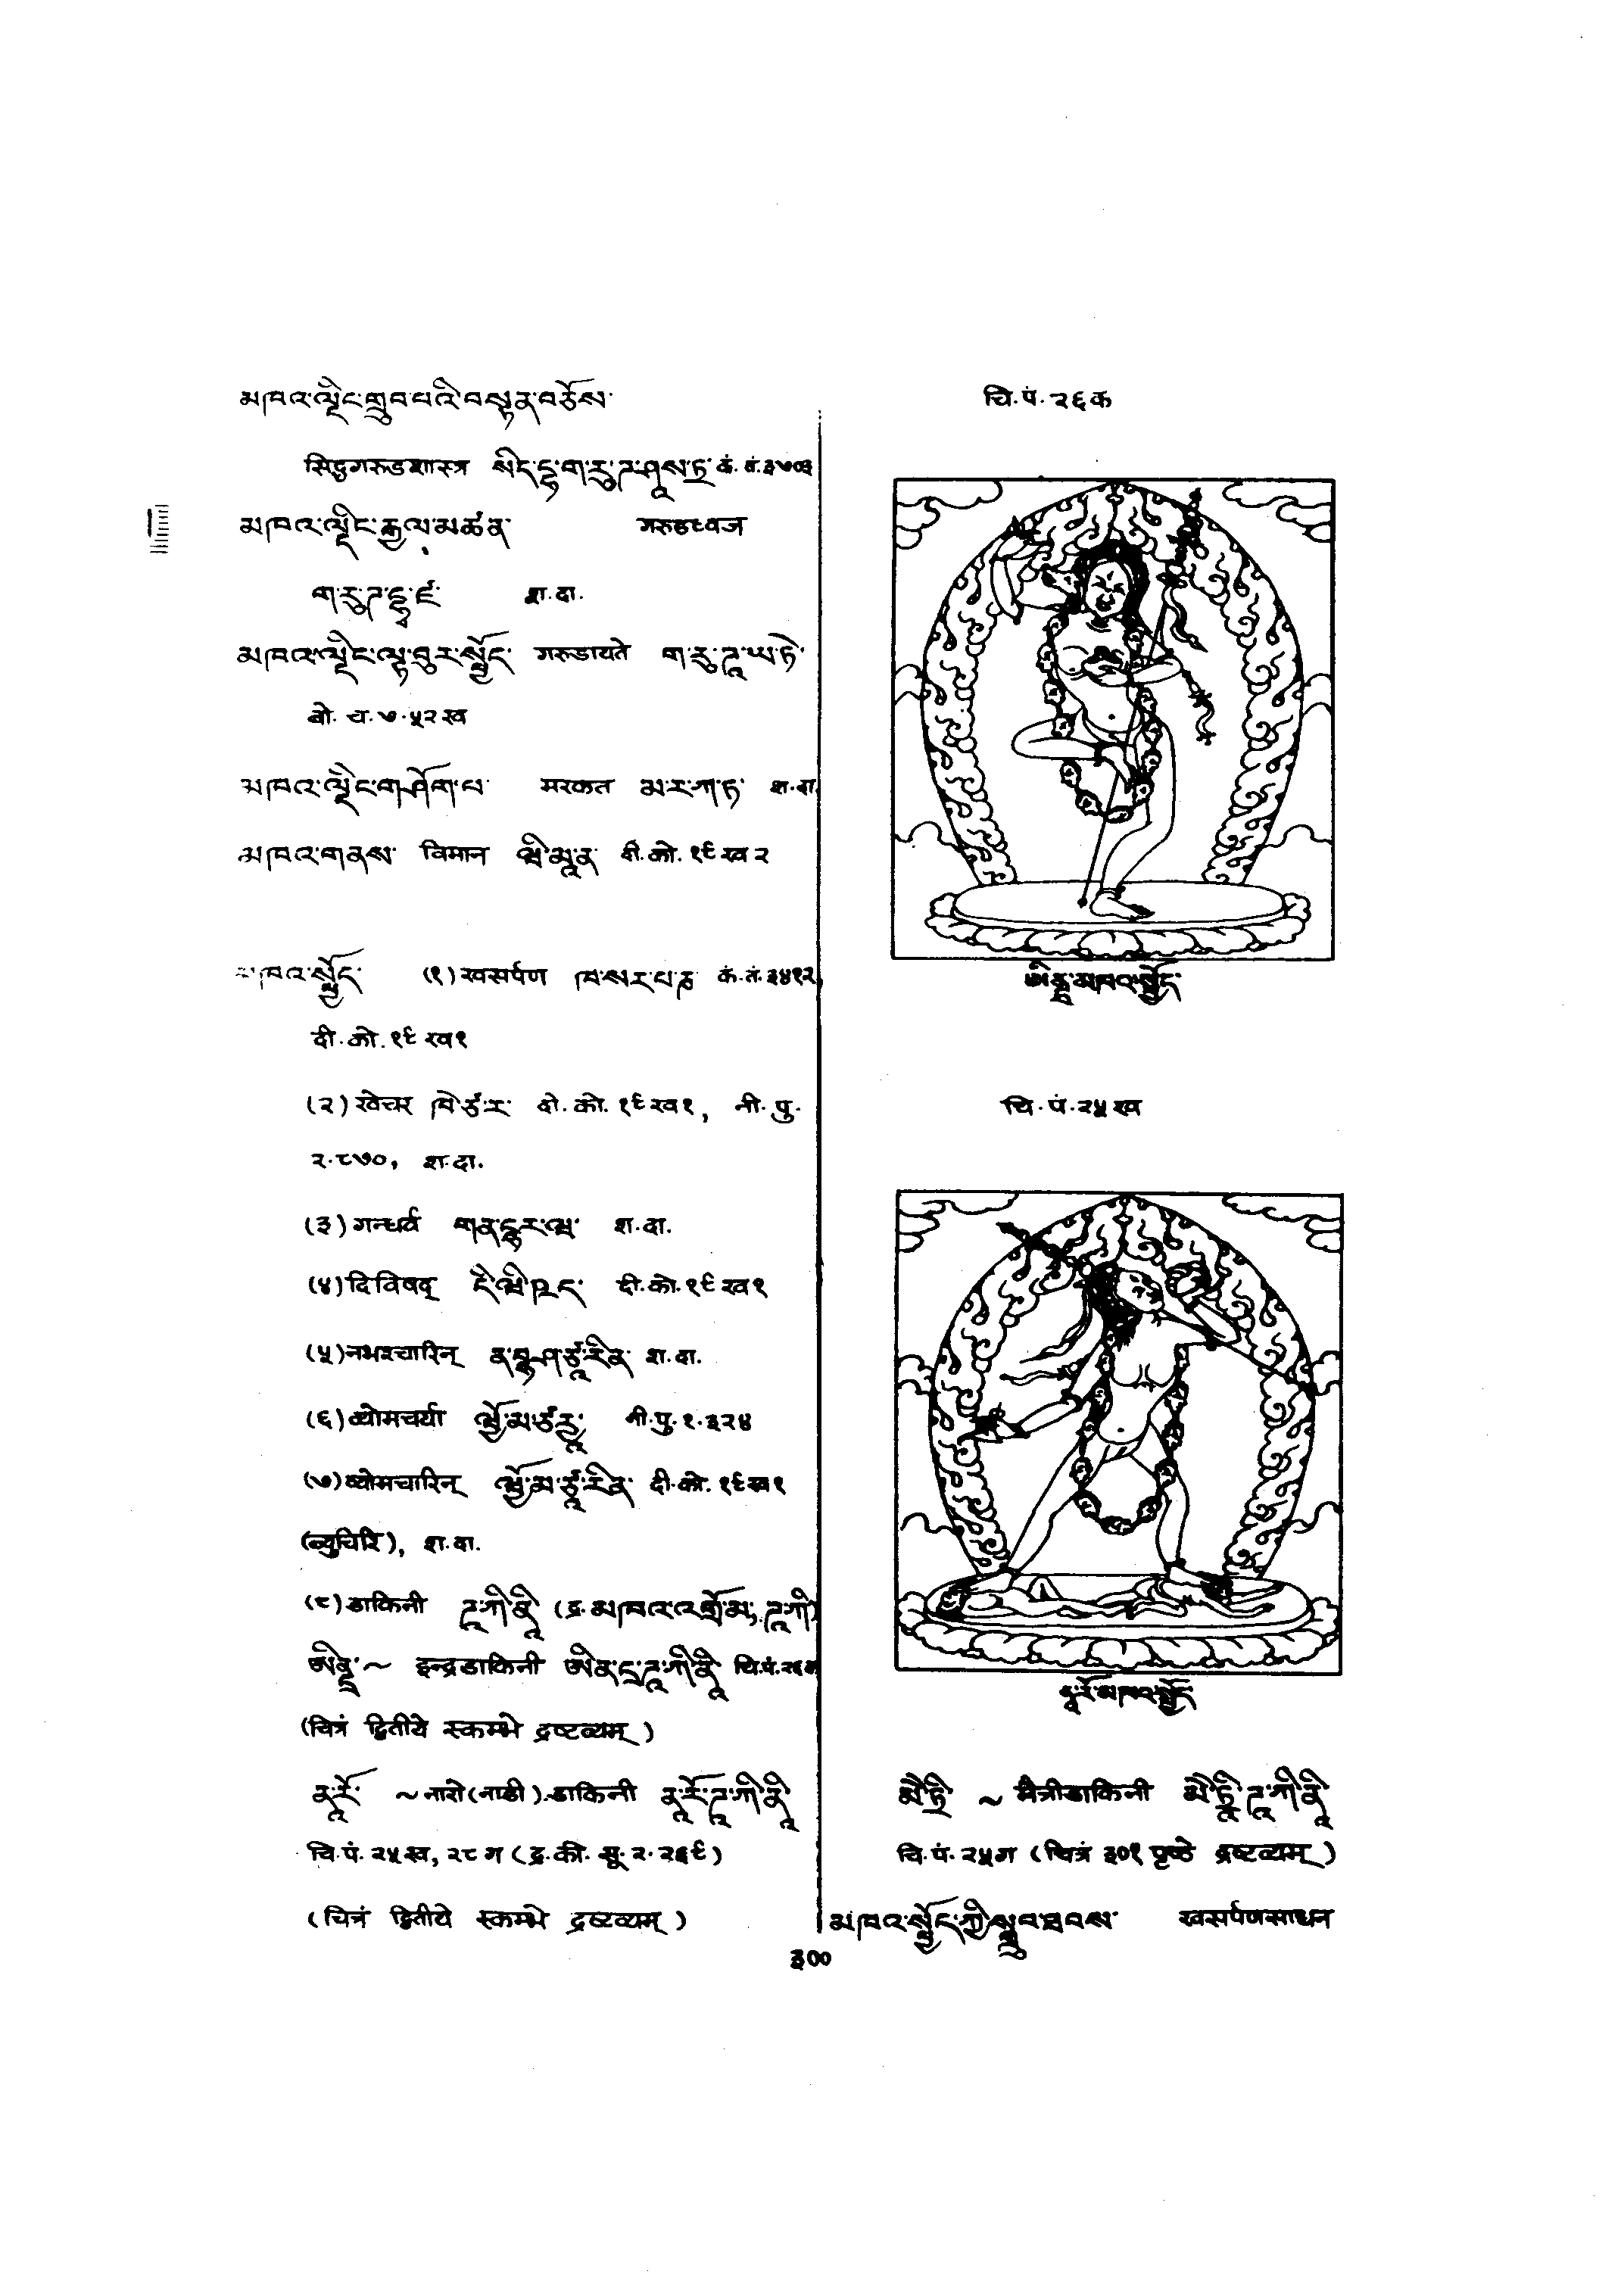 མཁའ་ལྡིང་གྲུབ་པའི་བསྟན་བཅོས་
सिद्धगरुडशास्त्र སིད་དྷ་ག་རུ་ཌ་ཤཱས་ཏྲ་ कं.तं.३७०३
མཁའ་ལྡིང་རྒྱལ་མཚན་ गरुडध्वज
ག་རུ་ཌ་དྷྭ་ཛ་ श.दा.
མཁའ་ལྡིང་ལྟ་བུར་སྤྱོད་ गरुडायते ག་རུ་ཌཱ་ཡ་ཏེ་
बो.च.७.५२ख
མཁའ་ལྡིང་གཤོག་པ་ मरकत མ་ར་ཀ་ཏ་ श.दा.
མཁའ་གནས་ विमान ཝི་མཱ་ན་ दी.को.१९ख२
མཁའ་སྤྱོད་ (१) खसर्पण ཁ་སར་པ་ཎ कं.तं.३४१२,
दी.को.१९ख१
(२) खेचर ཁེ་ཙ་ར་ दी.को.१९ख१, नी.पु.
२.८७०, श.दा.
(३) गन्धर्व གན་དྷར་ཝ་ श.दा.
(४) दिविषद् དི་ཝི་ཥད་ दी.को.१९ख१
(५) नभश्चारिन् ན་བྷ་ཤ་ཙཱ་རིན་ श.दा.
(६) व्योमचर्या ཝྱོ་མ་ཙརྱཱ་ नी.पु.१.३२४
(७) व्योमचारिन् ཝྱོ་མ་ཙཱ་རིན་ दी.को.१९ख१
(व्युचिरि), श.दा.
(८) डाकिनी ཌཱ་ཀི་ནཱི་ (द्र.མཁའ་འགྲོ་མ་, ཌཱ་ཀི)
ཨིནྡྲ་ ~ इन्द्रडाकिनी ཨིན་དྲ་ཌཱ་ཀི་ནཱི་ चि.पं.२६क
(चित्रं द्वितीये स्कम्भे द्रष्टव्यम्)
ནཱ་རོ་ ~ नारो (नाडी) डाकिनी ནཱ་རོ་ཌཱ་ཀི་ནཱི་
चि.पं.२५ख, २८ग (द्र.की.सू.२.२३९)
(चित्रं द्वितीये स्कम्भे द्रष्टव्यम्)
चि.पं.२६क
ཨིནྡྲ་མཁའ་སྤྱོད་
चि.पं.२५ख
ནཱ་རོ་མཁའ་སྤྱོད་
མཻ་ཏྲི་ ~ मैत्रीडाकिनी མཻ་ཏྲཱི་ཌཱ་ཀི་ནཱི་
चि.पं.२५ग (चित्रं ३०१ पृष्ठे द्रष्टव्यम्)
མཁའ་སྤྱོད་ཀྱི་སྒྲུབ་ཐབས་ खसर्पणसाधन
३००